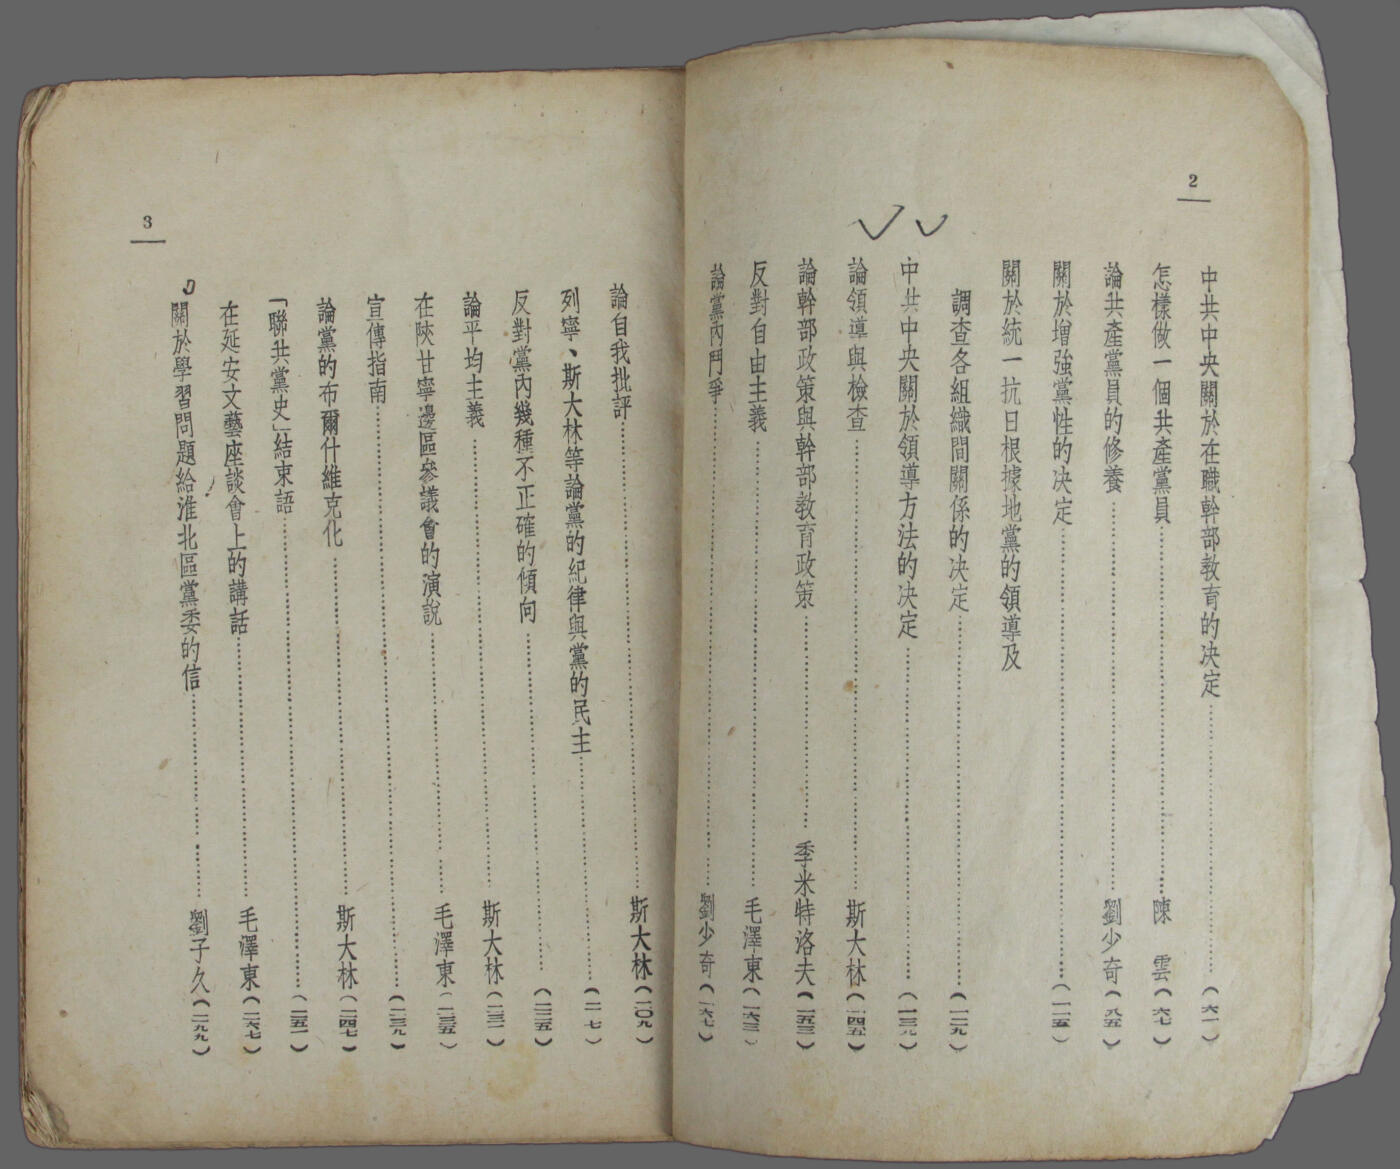 2
中共中央關於在職幹部教育的決定…………(六一)
怎樣做一個共產黨員…………陳　雲(六七)
論共產黨員的修養…………劉少奇(八五)
關於增強黨性的決定…………(一一五)
關於統一抗日根據地黨的領導及
調查各組織間關係的決定…………(一二九)
中共中央關於領導方法的決定…………(一三九)
論領導與檢查…………斯大林(一四五)
論幹部政策與幹部教育政策…………季米特洛夫(一五三)
反對自由主義…………毛澤東(一六三)
論黨內鬥爭…………劉少奇(一六七)
論自我批評…………斯大林(二〇九)
列寧、斯大林等論黨的紀律與黨的民主…………(二一七)
反對黨內幾種不正確的傾向…………(二二五)
論平均主義…………斯大林(二三一)
在陝甘寧邊區參議會的演說…………毛澤東(二三五)
宣傳指南…………(二三九)
論黨的布爾什維克化…………斯大林(二四七)
「聯共黨史」結束語…………(二五一)
在延安文藝座談會上的講話…………毛澤東(二六七)
關於學習問題給淮北區黨委的信…………劉子久(二九九)
3